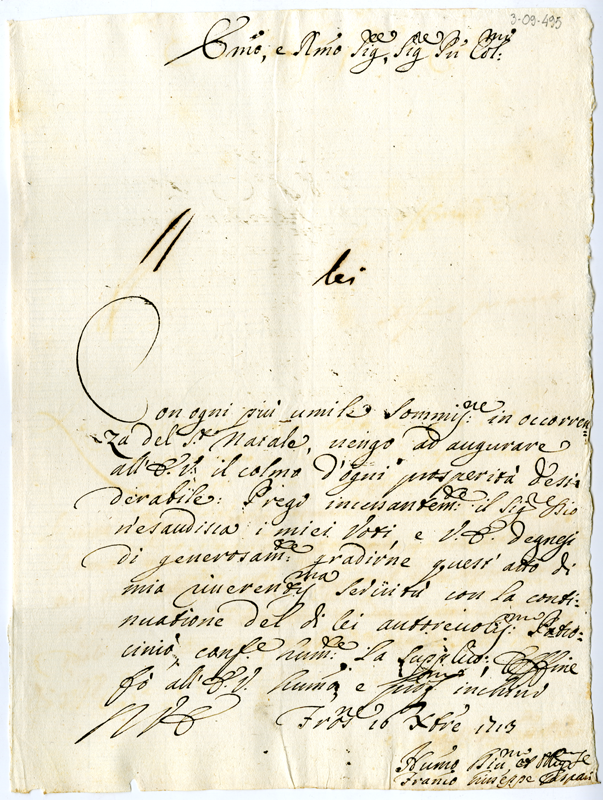 3-09-495
Emo, e Rmo Sig.re, Sig.re Pñ Col.mo
lei
Con ogni più umile Sommis.ne in occorren-
za del S.to Natale, vengo ad augurare
all'E.V. il colmo d'ogni prosperità desi-
derabile: Prego incessantem.te il Sig.re Dio
n'esaudisca i miei Voti, e V.E. degnesi
di generosam.te gradirne quest'atto di
mia riverend.ma servitù con la conti-
nuatione del di lei autorevolis.mo Patro-
cinio, conf.e hum.te la supplico: E ffine
fò all'E.V. humo, e inchino
V.E. 16 Xbre 1713
Humo
Franco Giuseppe Gaspari